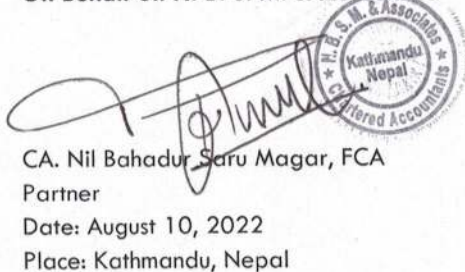 N. B. S. M. & Associates
Kathmandu
Nepal
Chartered Accountants
CA. Nil Bahadur Saru Magar, FCA
Partner
Date: August 10, 2022
Place: Kathmandu, Nepal